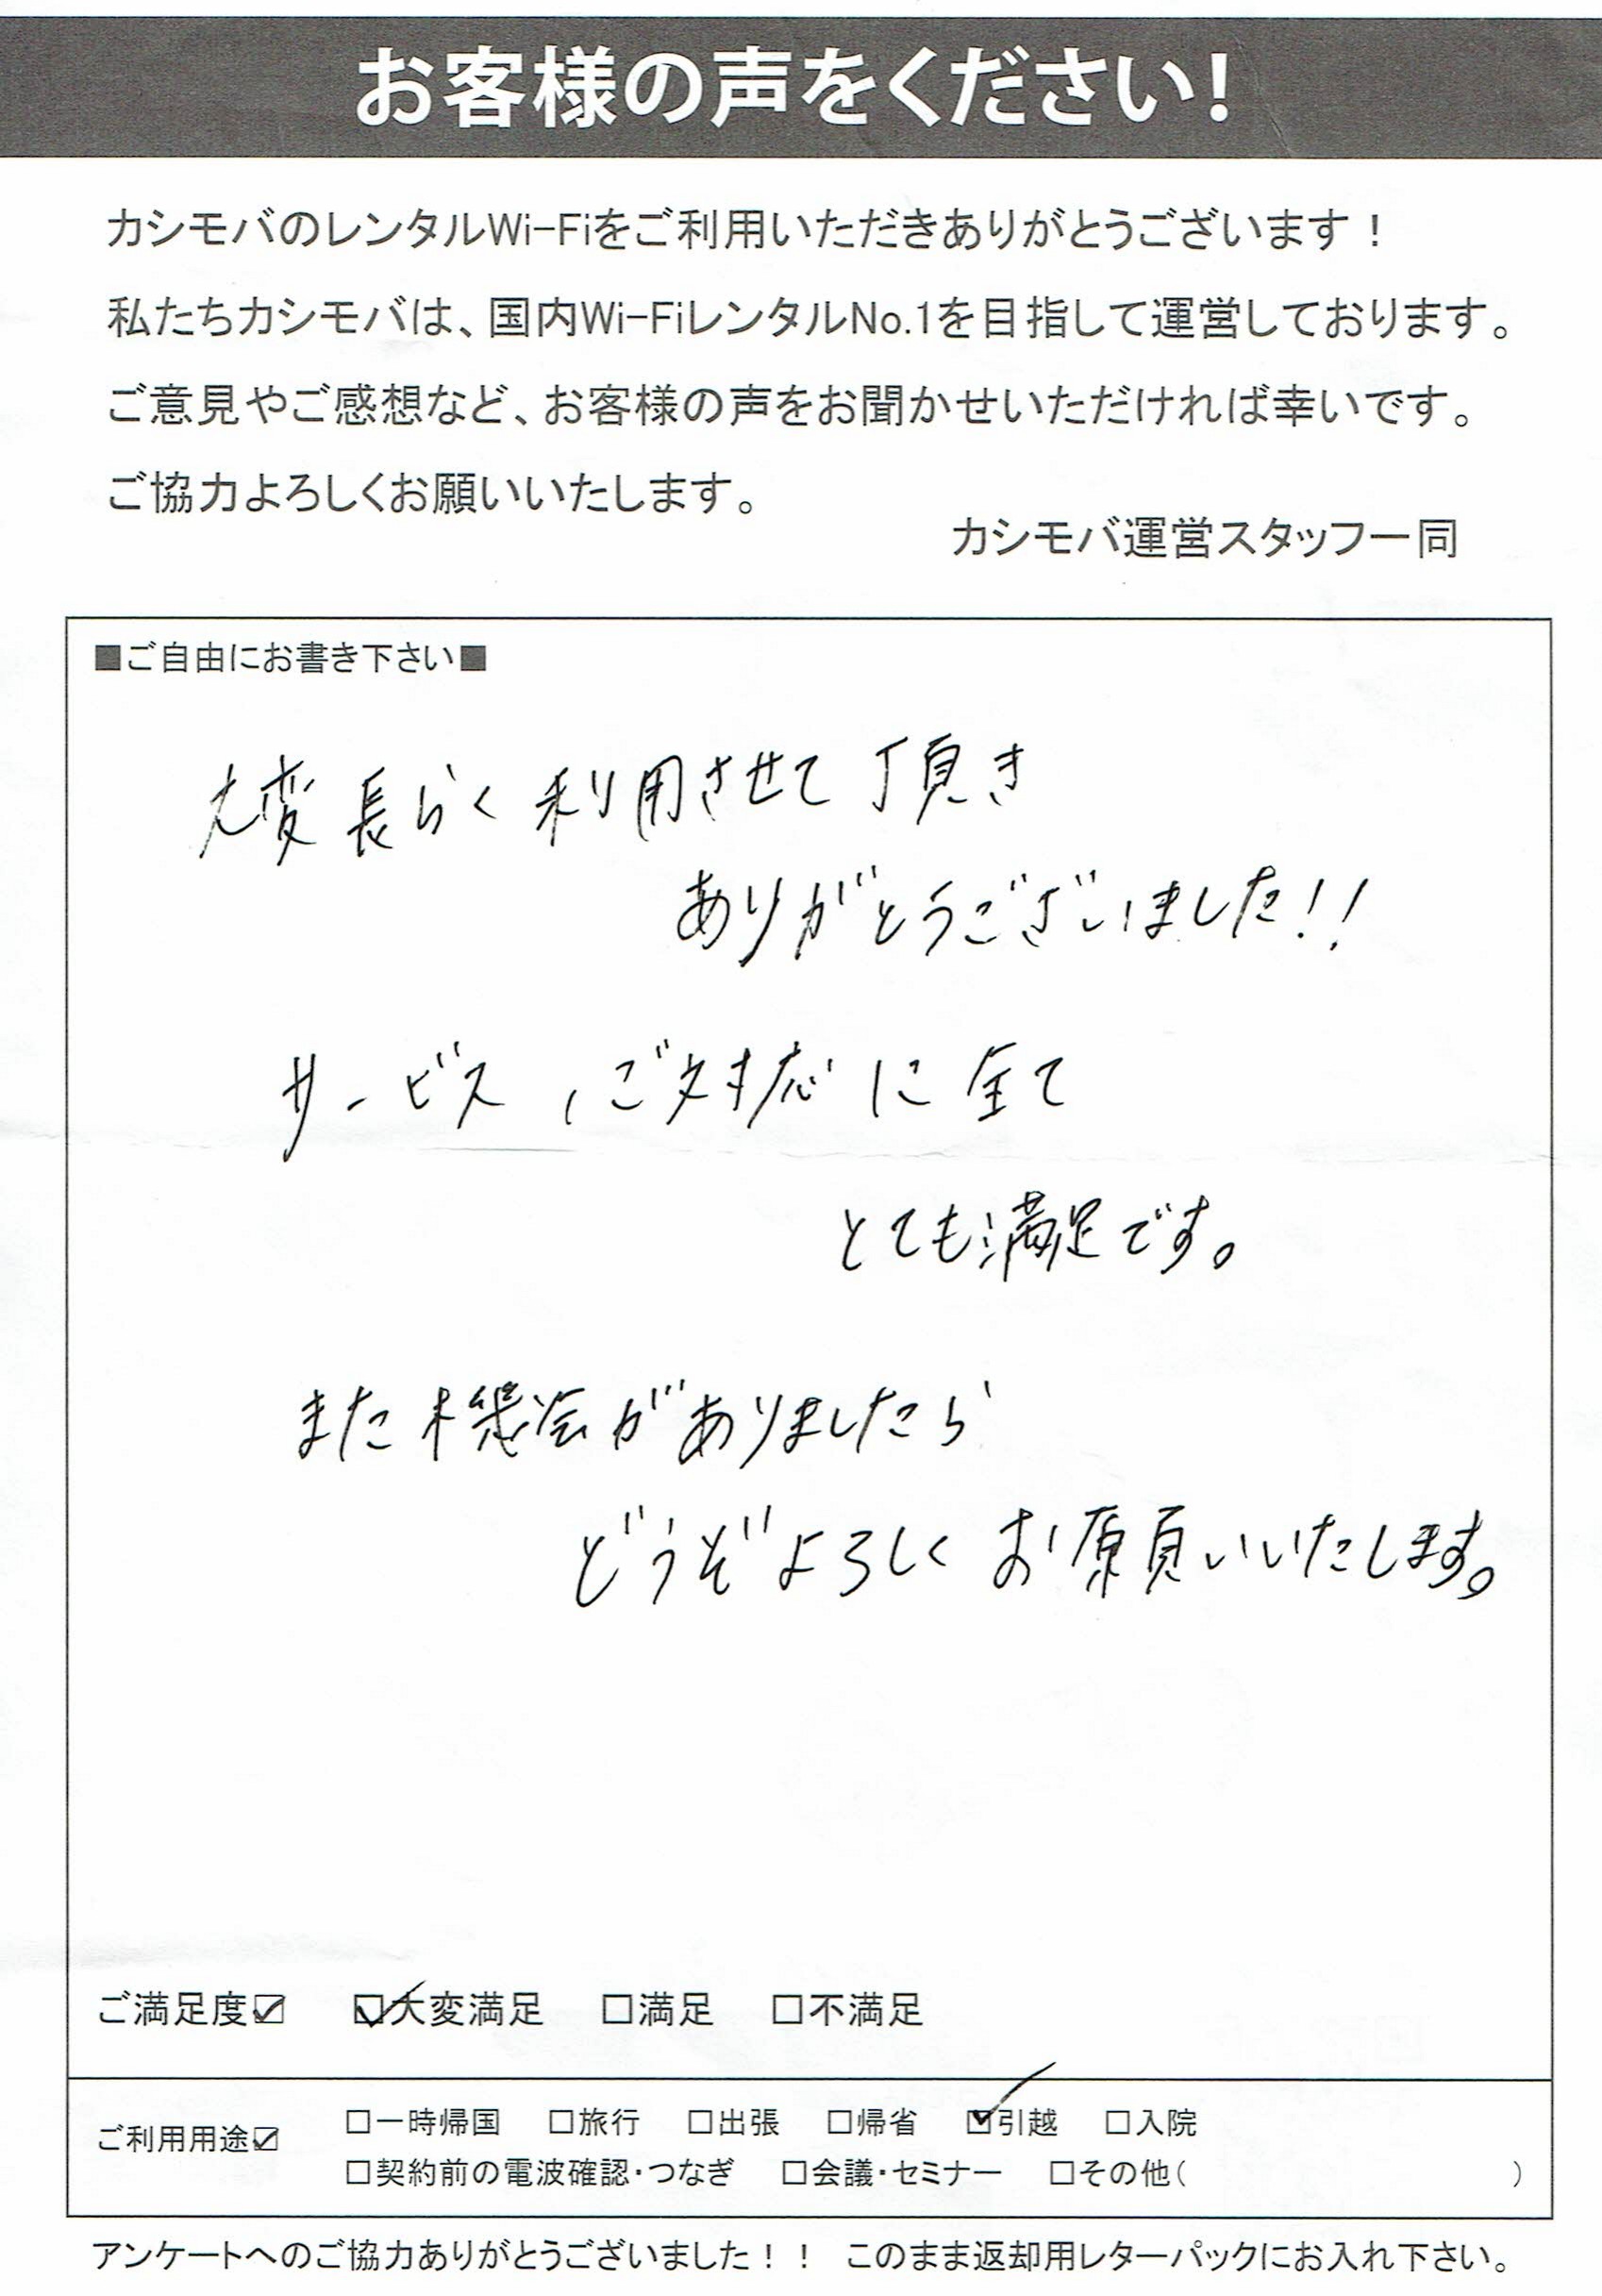 お客様の声をください!
カシモバのレンタルWi-Fiをご利用いただきありがとうございます！
私たちカシモバは、国内Wi-FiレンタルNo.1を目指して運営しております。
ご意見やご感想など、お客様の声をお聞かせいただければ幸いです。
ご協力よろしくお願いいたします。
カシモバ運営スタッフ一同
■ご自由にお書き下さい■
大変長らく利用させて頂き
ありがとうございました!!
サービス,ご対応に全て
とても満足です。
また機会がありましたら
どうぞよろしくお願いいたします。
ご満足度☑ ☑大変満足 □満足 □不満足
ご利用用途☑ □一時帰国 □旅行 □出張 □帰省 ☑引越 □入院
□契約前の電波確認・つなぎ □会議・セミナー □その他( )
アンケートへのご協力ありがとうございました！！ このまま返却用レターパックにお入れ下さい。